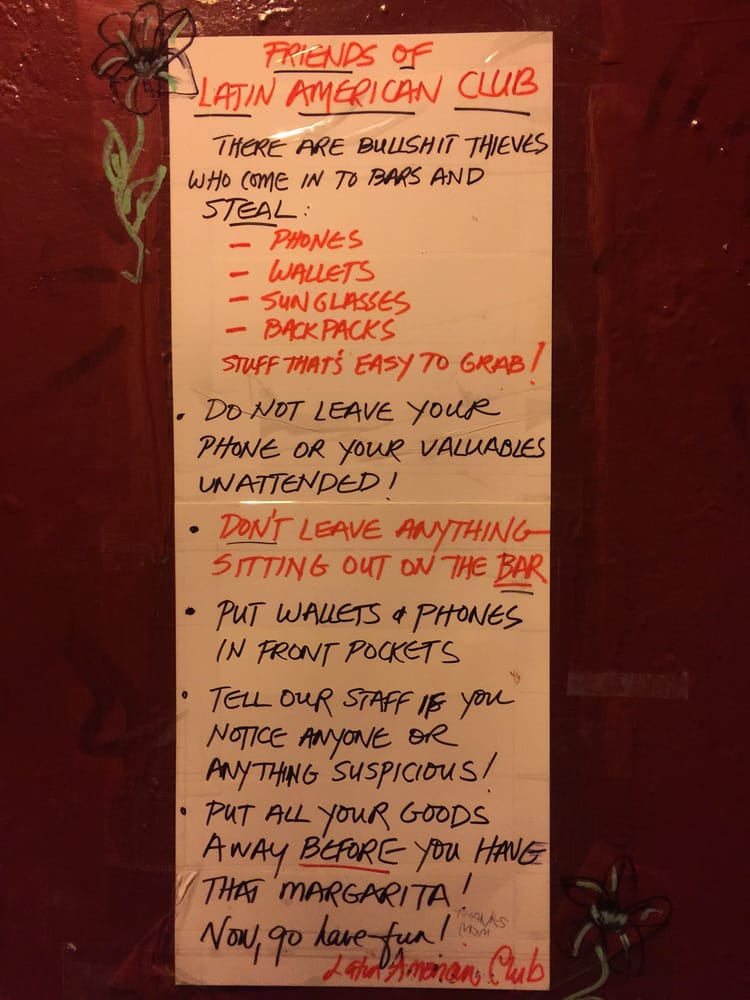 FRIENDS OF
LATIN AMERICAN CLUB
THERE ARE BULLSHIT THIEVES
WHO COME IN TO BARS AND
STEAL:
— PHONES
— WALLETS
— SUNGLASSES
— BACKPACKS
STUFF THAT'S EASY TO GRAB!
• DO NOT LEAVE YOUR
PHONE OR YOUR VALUABLES
UNATTENDED!
• DON'T LEAVE ANYTHING
SITTING OUT ON THE BAR
• PUT WALLETS & PHONES
IN FRONT POCKETS
• TELL OUR STAFF IF YOU
NOTICE ANYONE OR
ANYTHING SUSPICIOUS!
• PUT ALL YOUR GOODS
AWAY BEFORE YOU HAVE
THAT MARGARITA!
Now, go have fun!
THANKS
MOM
Latin American Club